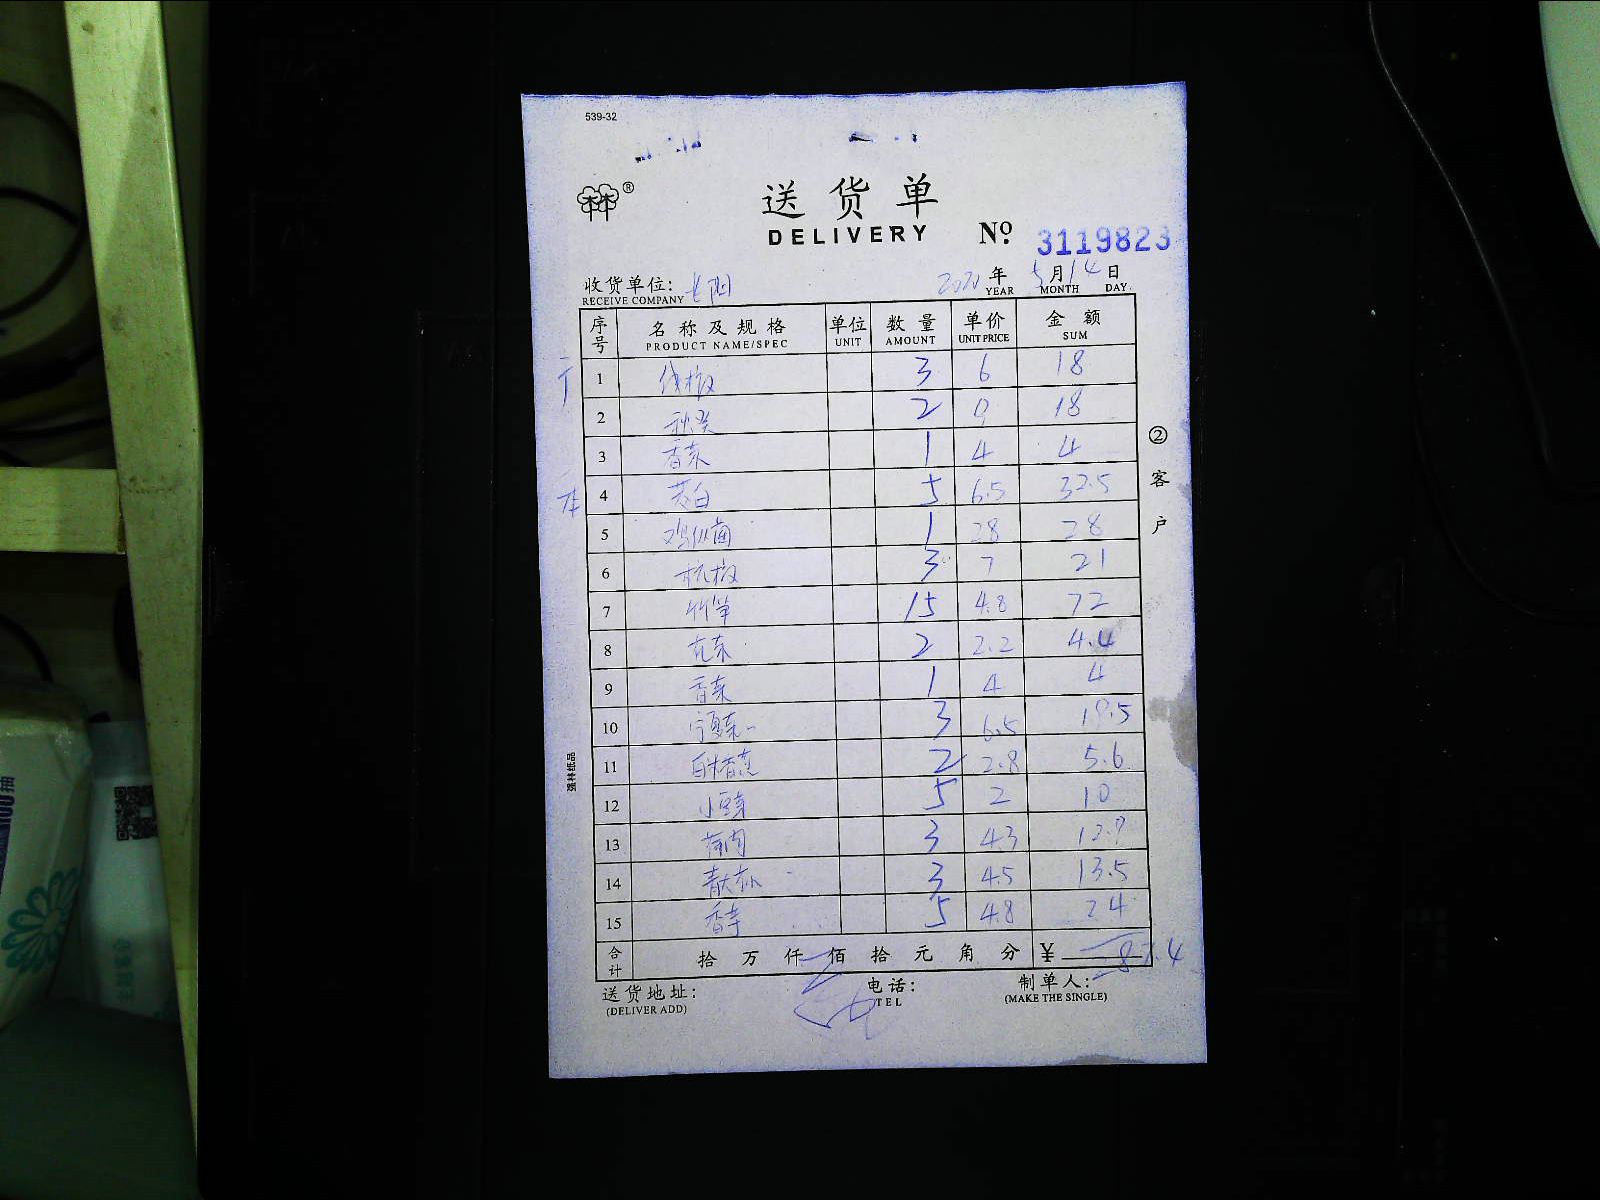 539-32
林®
送货单
DELIVERY
№ 3119823
收货单位:
RECEIVE COMPANY
年 5月14日
YEAR MONTH DAY
序号 名称及规格 单位 数量 单价 金额
PRODUCT NAME/SPEC UNIT AMOUNT UNIT PRICE SUM
1 线椒 3 6 18
2 秋葵 2 9 18
3 香菜 1 4 4
4 茭白 5 6.5 32.5
5 鸡纵菌 1 28 28
6 杭椒 3 7 21
7 竹笋 15 4.8 72
8 2 2.2 4.4
9 香菜 1 4 4
10 宁夏菜 3 6.5 19.5
11 2 2.8 5.6
12 小豆芽 5 2 10
13 3 4.3 12.9
14 3 4.5 13.5
15 香芋 5 4.8 24
合计 拾 万 仟 佰 拾 元 角 分 ¥
送货地址:
(DELIVER ADD)
电话:
TEL
制单人:
(MAKE THE SINGLE)
②客户
强林纸品